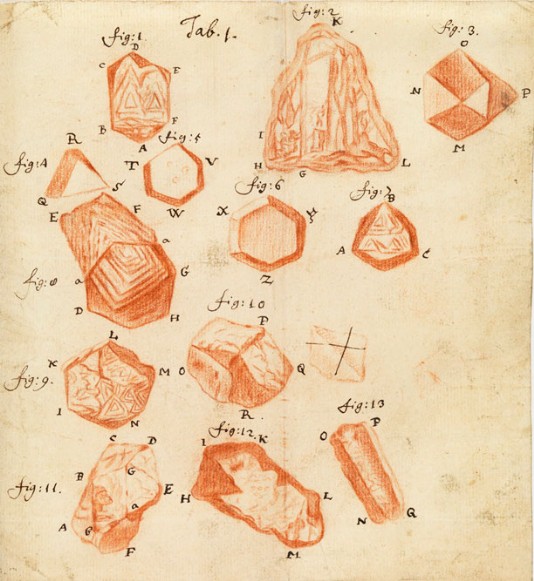 Tab. 1.
fig: 1.
D
C
E
B
F
A
fig: 2
K
I
H
G
L
fig: 3.
O
N
P
M
fig: 4
R
Q
S
fig: 5
T
V
W
fig: 6
X
Z
fig: 7
B
A
C
fig: 8
E
F
a
a
G
D
H
fig: 9.
L
K
M
I
N
fig: 10
P
O
Q
R.
fig: 11.
C
D
B
G
E
a
A
F
fig: 12.
I
K
H
L
M
fig: 13
O
P
N
Q